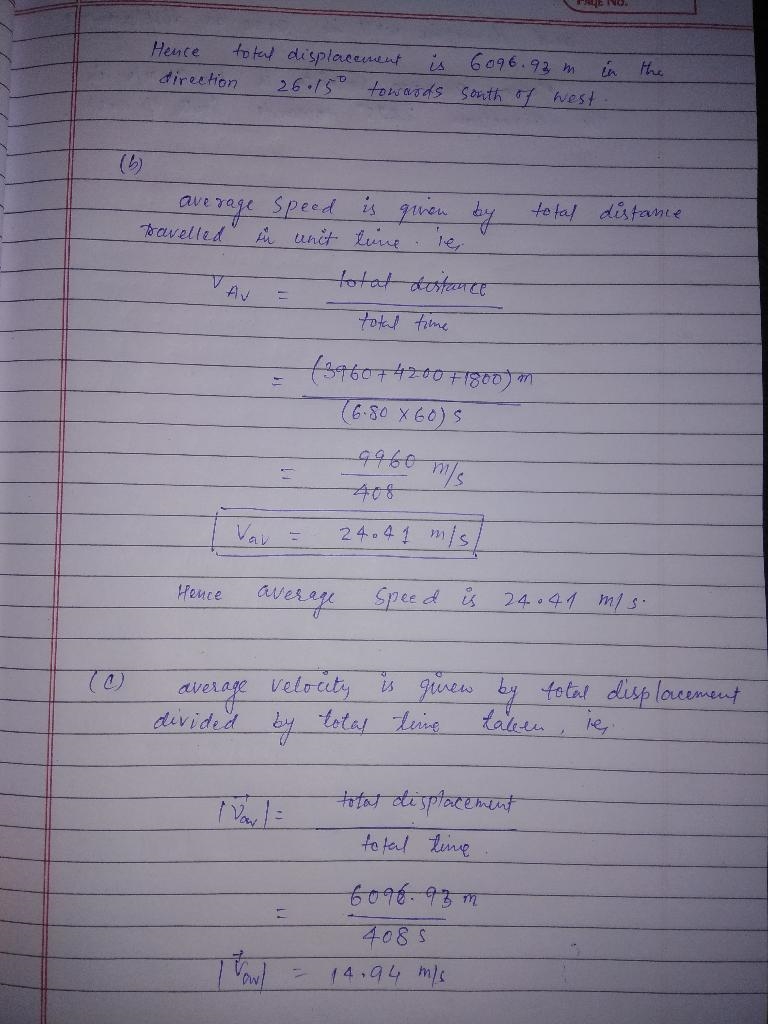 PAGE NO.
Hence total displacement is 6096.93 m in the
direction 26.15° towards south of west.
(b)
average speed is given by total distance
travelled in unit time. ie,
V AV = total distance
total time
= (3960+4200+1800) m
(6.80 X 60) s
= 9960 m/s
408
Vav = 24.41 m/s
Hence average speed is 24.41 m/s.
(c) average velocity is given by total displacement
divided by total time taken, ie,
|V⃗av| = total displacement
total time.
= 6096.93 m
408 s
|V⃗av| = 14.94 m/s